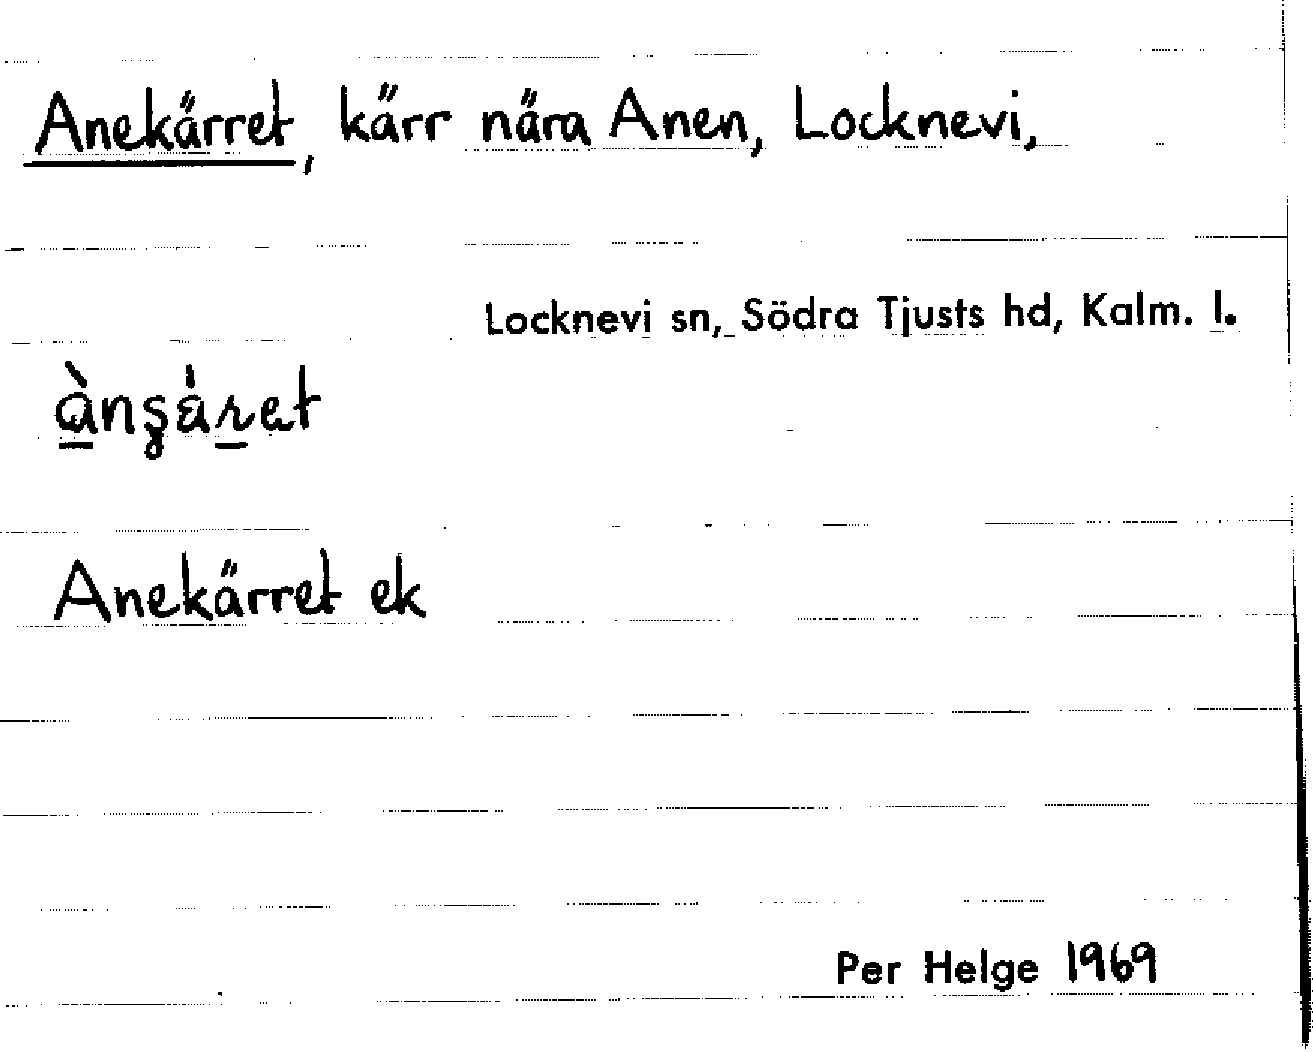 Anekärret, kärr nära Anen, Locknevi,
Locknevi sn, Södra Tjusts hd, Kalm. l.
Anekärret ek
Per Helge 1969